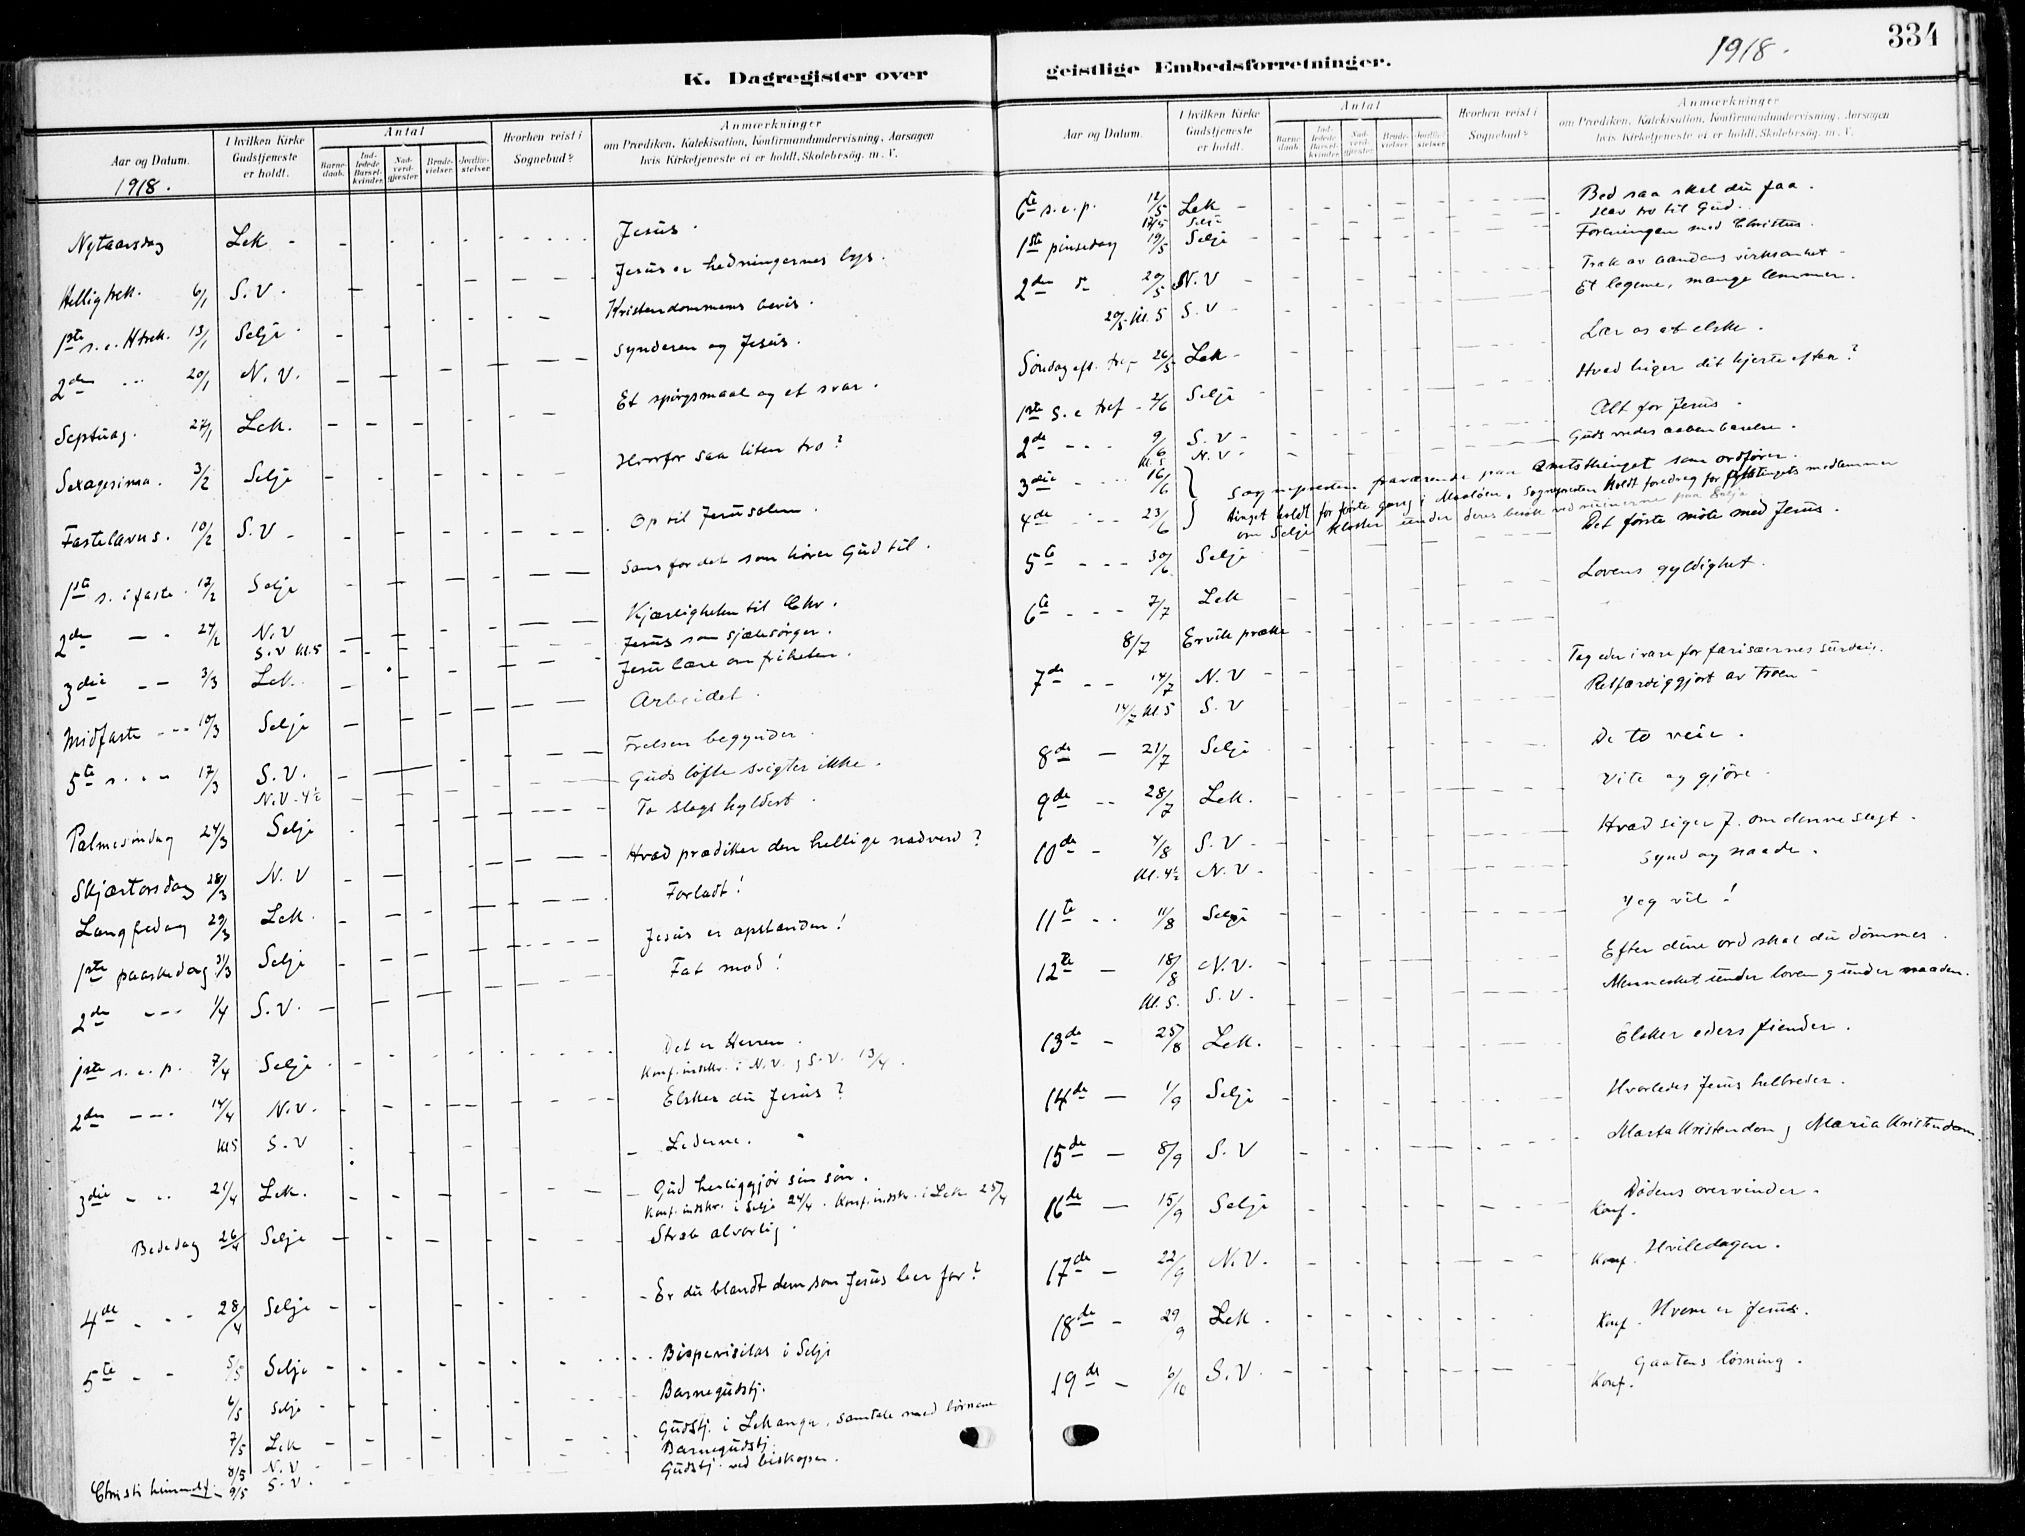 K. Dagregister over
Aar og Datum.
I hvilken Kirke Gudstjeneste er holdt.
Antal
Barnedaab.
Indledede Barselkvinder.
Nadverdgjæster
Brudevielser.
Jordfæstelser.
Hvorhen reist i Sognebud?
Anmærkninger
om Prædiken, Katekisation, Konfirmandundervisning, Aarsagen
hvis Kirketjeneste ei er holdt, Skolebesög. m. V.
1918.
Nytaarsdag Lek - Jesus.
Helligtrek. 6/1 S.V. Jesus er hedningernes lys.
1ste s.e. Htrek. 13/1 Selje Kristendommens bevis.
2den - - 20/1 N.V. Synderen og Jesus.
Septuag. 27/1 Lek. Et spörgsmaal og et svar.
Sexagesima. 3/2 Selje Hvorfor saa liten tro?
Fastelavns. 10/2 S.V - Op til Jerusalem.
1ste s. i faste. 17/2 Selje Sans for det som hörer Gud til.
2den - - 24/2 N.V Kjærligheten til Chr.
S.V kl.5 Jesus som sjælesörger.
3die - - 3/3 Lek. Jesu lære om friheten.
Midfaste - - - 10/3 Selje Arbeidet.
5te s. - - 17/3 S.V. Frelsen begynder.
N.V - 4½ Guds löfte svigter ikke.
Palmesöndag 24/3 Selje To slags hyldest.
Skjærtorsdag 28/3 N.V Hvad prædiker den hellige nadverd?
Langfredag 29/3 Lek. Forladt!
1ste paaskedag 31/3 Selje Jesus er opstanden!
2den - - - 1/4 S.V. Fat mod!
1ste s.e.p. 7/4 Selje Det er Herren.
Konf.indskr. i N.V. og S.V. 13/4.
2den - - - 14/4 N.V. Elsker du Jesus?
kl 5 S.V Lederne.
3die - - 21/4 Lek. Gud herliggjör sin sön.
Konf.indskr. i Selje 24/4. Konf.indskr. i Lek 25/4
Bededag 26/4 Selje Stræb alvorlig.
4de - - - 28/4 Selje Er du blandt dem som Jesus ber for?
5te - - 5/5 Selje Bispevisitas i Selje
6/5 Selje Barnegudstj.
7/5 Lek Gudstj. i Lekanger, samtale med börnene
8/5 N.V Barnegudstj.
Christi himmelf. - 9/5 S.V. Gudstj. ved biskopen.
geistlige Embedsforretninger.
1918.
334
Aar og Datum.
I hvilken Kirke Gudstjeneste er holdt.
Antal
Barnedaab.
Indledede Barselkvinder.
Nadverdgjæster.
Brudevielser.
Jordfæstelser
Hvorhen reist i Sognebud?
Anmærkninger
om Prædiken, Katekisation, Konfirmandundervisning, Aarsagen
hvis Kirketjeneste ei er holdt, Skolebesög. m. V.
6te s.e.p. 12/5 Lek - Bed saa skal du faa.
12/5 Selje Hav tro til Gud.
1ste pinsedag 19/5 Selje Foreningen med Christus.
2den d 20/5 N.V Træk av aandens virksomhet -
20/5 kl. 5 S.V Et legeme, mange lemmer.
Söndag eft. tref 26/5 Lek - Lær os at elske.
1ste s. e tref - 2/6 Selje Hvad higer dit hjerte efter?
2de - - - 9/6 S.V - Alt for Jesus.
kl. 5 N.V - Guds vredes aabenbarelse.
3die - - - 16/6 } Sognepresten fraværende paa Amtstinget som ordförer.
4de - - - 23/6 } tinget holdt for förste gang i Maalöen. Sognepresten holdt foredrag for fylkstingets medlemmer
om Selje kloster under deres besök ved ruinerne paa Selje
5te - - - 30/6 Selje Det förste möte med Jesus.
6te - - - 7/7 Lek Lovens gyldighet.
8/7 Ervik præke
7de - - 14/7 N.V - Tag eder i vare for farisæernes surdeig.
14/7 kl 5 S.V Retfærdiggjort av troen -
8de - 21/7 Selje De to veie.
9de - - 28/7 Lek. Vite og gjöre.
10de - 4/8 S.V - Hvad siger J. om denne slegt.
kl. 4½ N.V - Synd og naade.
11te - - 11/8 Selje Jeg vil!
12te - 18/8 N.V. Efter dine ord skal du dömmes.
kl. 5. S.V. Mennesket under loven og under naaden.
13de - 25/8 Lek. Elsker eders fiender.
14de - 1/9 Selje Hvorledes Jesus helbreder.
15de - 8/9 S.V Martakristendom og Mariakristendom.
16de - 15/9 Selje Konf. Dödens overvinder.
17de - 22/9 N.V. Konf. Hviledagen.
18de - 29/9 Lek. Konf. Hvem er Jesus.
19de - 6/10 S.V. Konf. Gaatens lösning.